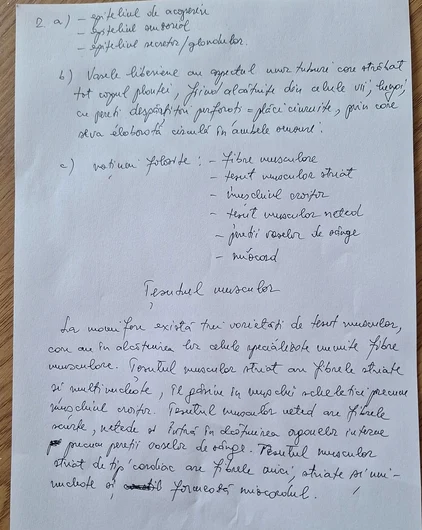 2. a) - epiteliul de acoperire
- epiteliul senzorial
- epiteliul secretor / glandular.
b) Vasele liberiene au aspectul unor tuburi care străbat
tot corpul plantei, fiind alcătuite din celule vii, lungi,
cu pereți despărțitori perforați = plăci ciuruite, prin care
seva elaborată circulă în ambele sensuri.
c) noțiuni folosite : - fibre musculare
- țesut muscular striat
- mușchiul croitor
- țesut muscular neted
- pereții vaselor de sânge
- miocard
Țesutul muscular
La mamifere există trei varietăți de țesut muscular,
care au în alcătuirea lor celule specializate numite fibre
musculare. Țesutul muscular striat are fibrele striate
și multinucleate, îl găsim în mușchii scheletici precum
mușchiul croitor. Țesutul muscular neted are fibrele
scurte, netede și intră în alcătuirea organelor interne
precum pereții vaselor de sânge. Țesutul muscular
striat de tip cardiac are fibrele mici, striate și uni-
nucleate și formează miocardul.